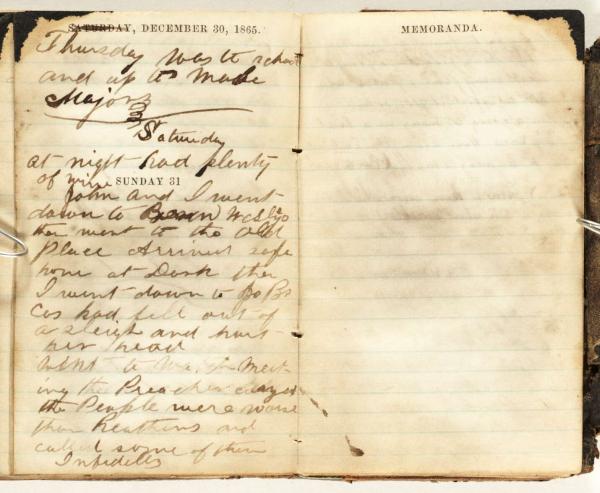 SATURDAY, DECEMBER 30, 1865.
Thursday was to school
and up to Made
Majors
Saturday
at night had plenty
of wine
SUNDAY 31
John and I went
down to
then went to the Old
Place Arrived safe
home at Dark then
I went down to
had fell out of
a sleigh and hurt
her head
went to Meet-
ing the Preacher
the People were worse
than Heathens and
called some of them
Infidells
MEMORANDA.